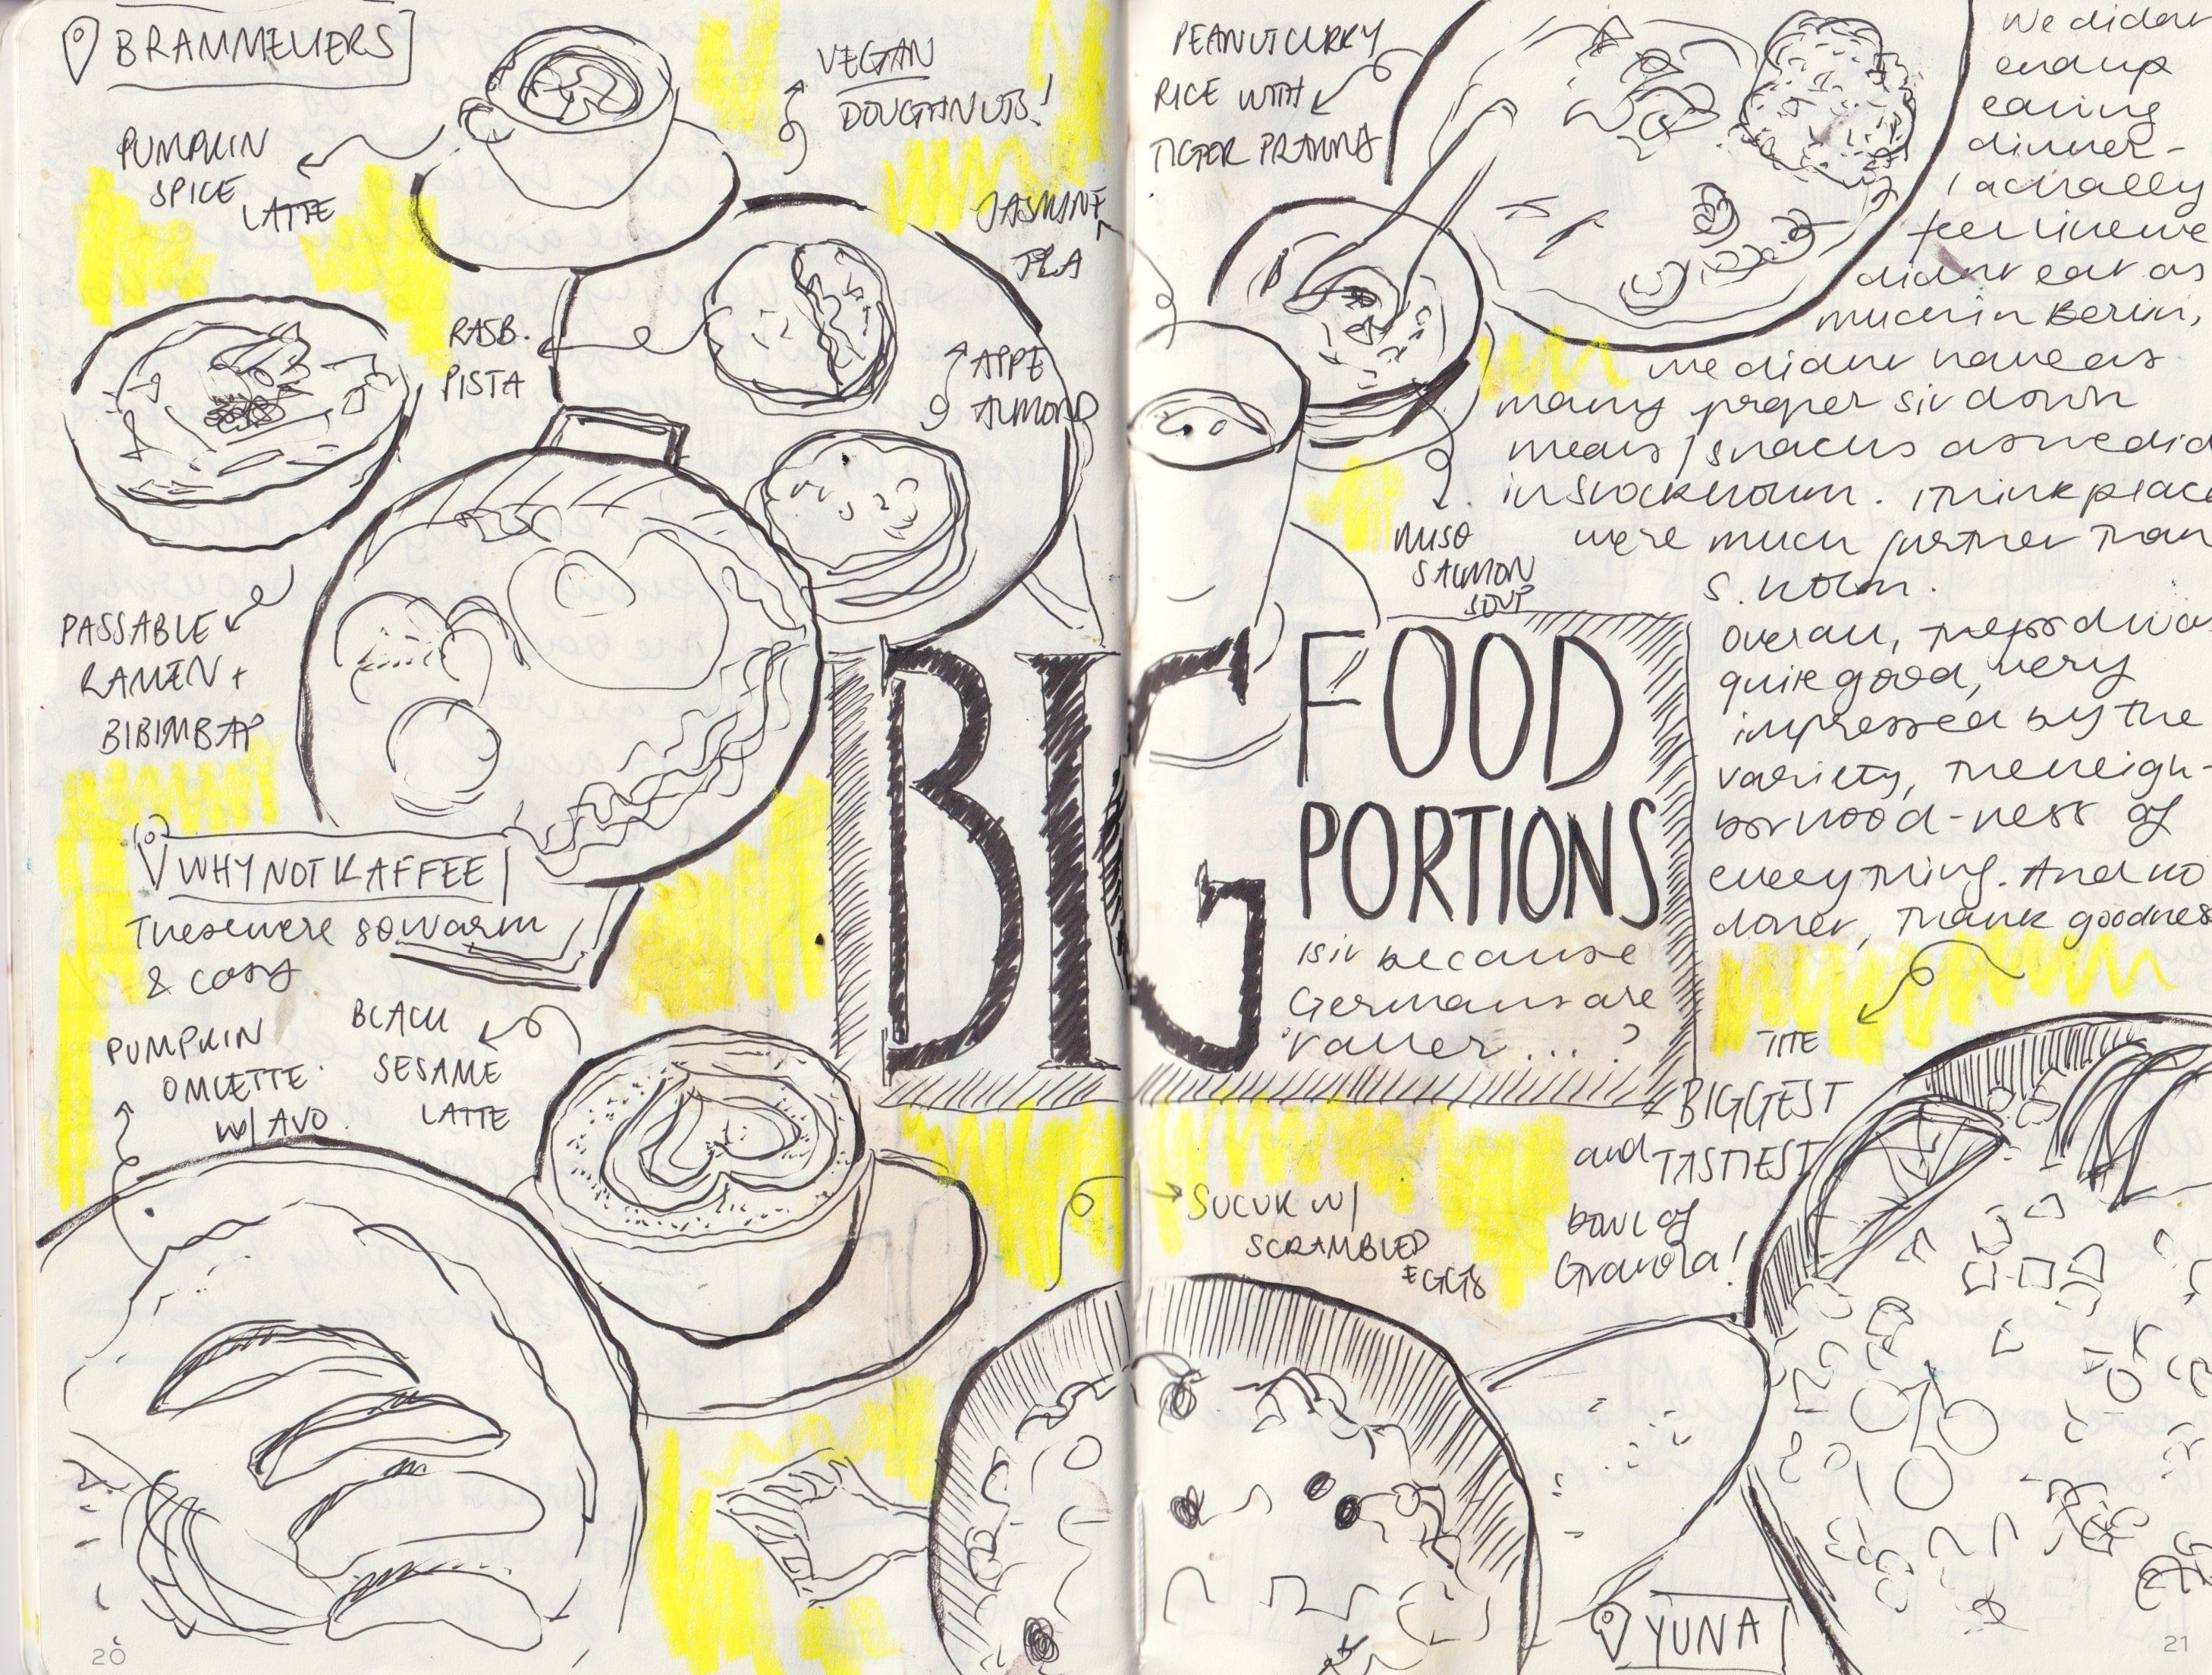 BRAMMELIERS
PUMPKIN
SPICE
LATTE
VEGAN
DOUGHNUTS!
JASMINE
TEA
RASB.
PISTA
APPE
ALMOND
PASSABLE
RAMEN +
BIBIMBAP
WHY NOT KAFFEE
These were so warm
& cosy
PUMPKIN
OMLETTE
W/ AVO.
BLACK
SESAME
LATTE
BIG FOOD
PORTIONS
is it because
Germans are
taller...?
PEANUT CURRY
RICE WITH
TIGER PRAWNS
MISO
SALMON
SOUP
We didn't
end up
eating
dinner -
I actually
feel like we
didn't eat as
much in Berlin,
we didn't have as
many proper sit down
meals / snacks as we did
in Stockholm. I think place
were much further than
S. holm.
Overall, the food was
quite good, very
impressed by the
variety, the neigh-
borhood-ness of
everything. And no
doner, thank goodness
THE
BIGGEST
and TASTIEST
bowl of
Granola!
SUCUK W/
SCRAMBLED
EGGS
YUNA
20
21